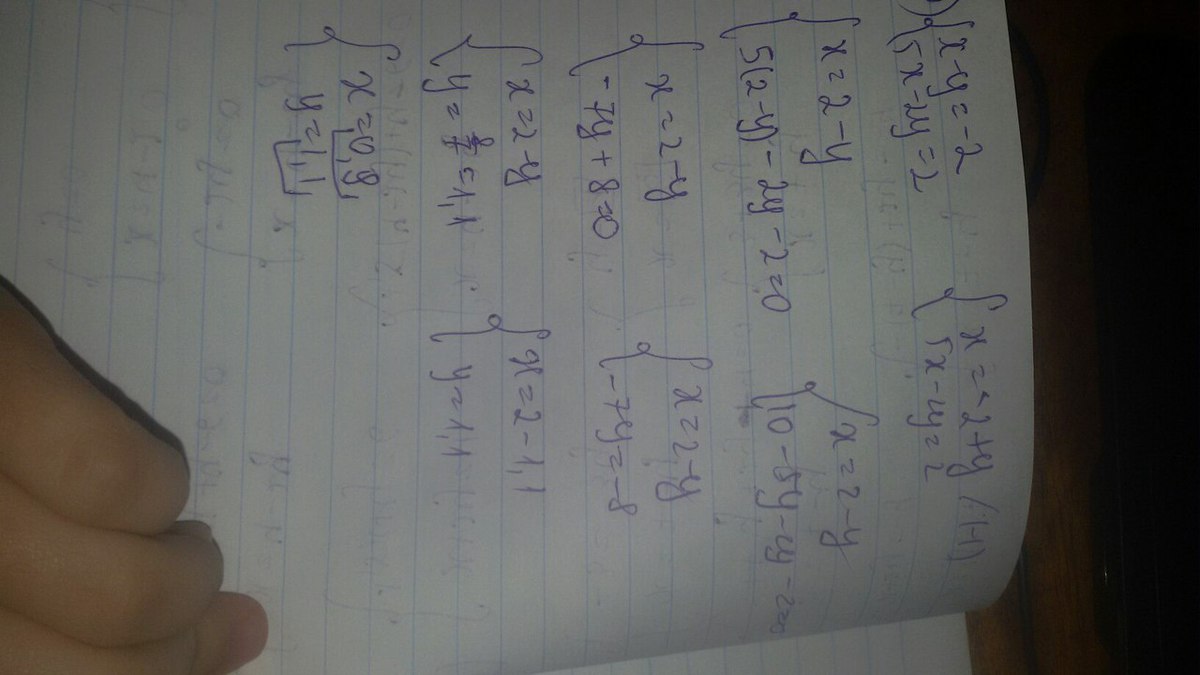 x-y=-2
5x-2y=2
x=-2+y /(-1)
5x-2y=2
x=2-y
5(2-y)-2y-2=0
x=2-y
10-5y-2y-2=0
x=2-y
-7y+8=0
x=2-y
-7y=-8
x=2-y
y=8/7=1,1
x=2-1,1
y=1,1
x=0,9
y=1,1